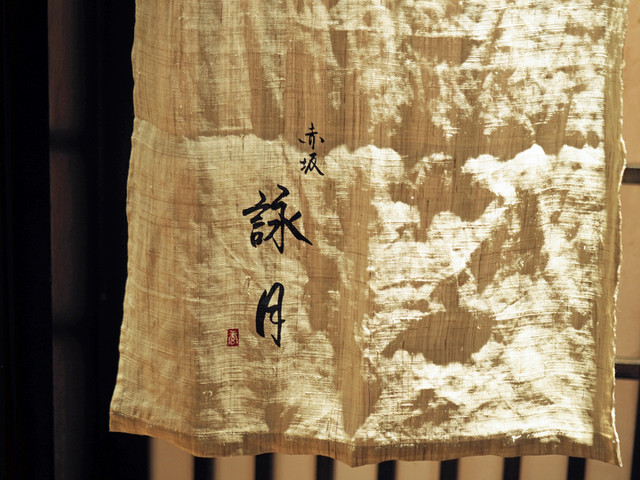 赤坂
詠月